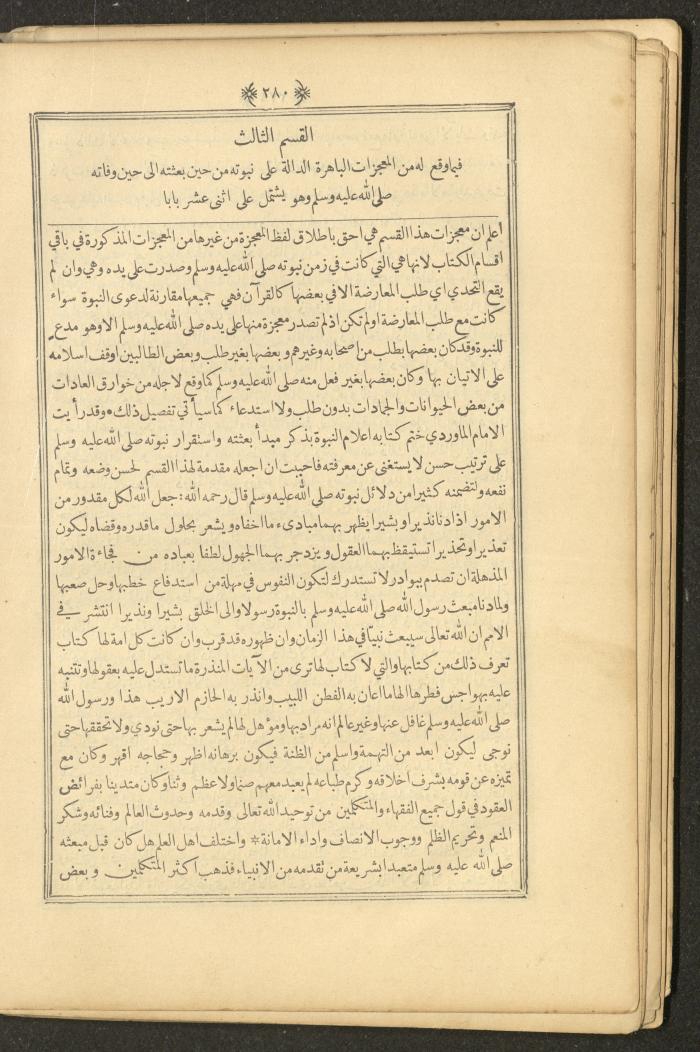 ٢٨٠
القسم الثالث
فيما وقع له من المعجزات الباهرة الدالة على نبوته من حين بعثته الى حين وفاته
صلى الله عليه وسلم وهو يشتمل على اثنى عشر بابا
أعلم ان معجزات هذا القسم هي احق باطلاق لفظ المعجزة من غيرها من المعجزات المذكورة في باقي
اقسام الكتاب لانها هي التي كانت في زمن نبوته صلى الله عليه وسلم وصدرت على يده وهي وان لم
يقع التحدي اي طلب المعارضة الا في بعضها كالقرآن فهي جميعها مقارنة لدعوى النبوة سواء
كانت مع طلب المعارضة او لم تكن اذ لم تصدر معجزة منها على يده صلى الله عليه وسلم الا وهو مدع
للنبوة وقد كان بعضها بطلب من اصحابه وغيرهم وبعضها بغير طلب وبعض الطالبين اوقف اسلامه
على الاتيان بها وكان بعضها بغير فعل منه صلى الله عليه وسلم كما وقع لاجله من خوارق العادات
من بعض الحيوانات والجمادات بدون طلب ولا استدعاء كما سيأتي تفصيل ذلك * وقد رأيت
الامام الماوردي ختم كتابه اعلام النبوة بذكر مبدأ بعثته واستقرار نبوته صلى الله عليه وسلم
على ترتيب حسن لا يستغنى عن معرفته فاحببت ان اجعله مقدمة لهذا القسم لحسن وضعه وتمام
نفعه ولتضمنه كثيرا من دلائل نبوته صلى الله عليه وسلم قال رحمه الله : جعل الله لكل مقدور من
الامور اذا دنا نذيرا وبشيرا يظهر بهما مبادىء ما اخفاه ويشعر بحلول ما قدره وقضاه ليكون
تعذيرا وتحذيرا تستيقظ بهما العقول ويزدجر بهما الجهول لطفا بعباده من فجاءة الامور
المذهلة ان تصدم ببوادر لا تستدرك لتكون النفوس في مهلة من استدفاع خطبها وحل صعبها
ولما دنا مبعث رسول الله صلى الله عليه وسلم بالنبوة رسولا والى الخلق بشيرا ونذيرا انتشر في
الامم ان الله تعالى سيبعث نبيا في هذا الزمان وان ظهوره قد قرب وان كانت كل امة لها كتاب
تعرف ذلك من كتابها والتي لا كتاب لها ترى من الآيات المنذرة ما تستدل عليه بعقولها وتتنبه
عليه بهواجس فطرها الهاما اعان به الفطن اللبيب وانذر به الحازم الاريب هذا ورسول الله
صلى الله عليه وسلم غافل عنها وغير عالم انه مراد بها ومؤهل لها لم يشعر بها حتى نودي ولا تحققها حتى
نوجى ليكون ابعد من التهمة واسلم من الظنة فيكون برهانه اظهر وحجاجه اقهر وكان مع
تميزه عن قومه بشرف اخلاقه وكرم طباعه لم يعبد معهم صنما ولا عظم وثنا وكان متدينا بفرائض
العقود في قول جميع الفقهاء والمتكلمين من توحيد الله تعالى وقدمه وحدوث العالم وفنائه وشكر
المنعم وتحريم الظلم ووجوب الانصاف واداء الامانة * واختلف اهل العلم هل كان قبل مبعثه
صلى الله عليه وسلم متعبدا بشريعة من تقدمه من الانبياء فذهب اكثر المتكلمين وبعض